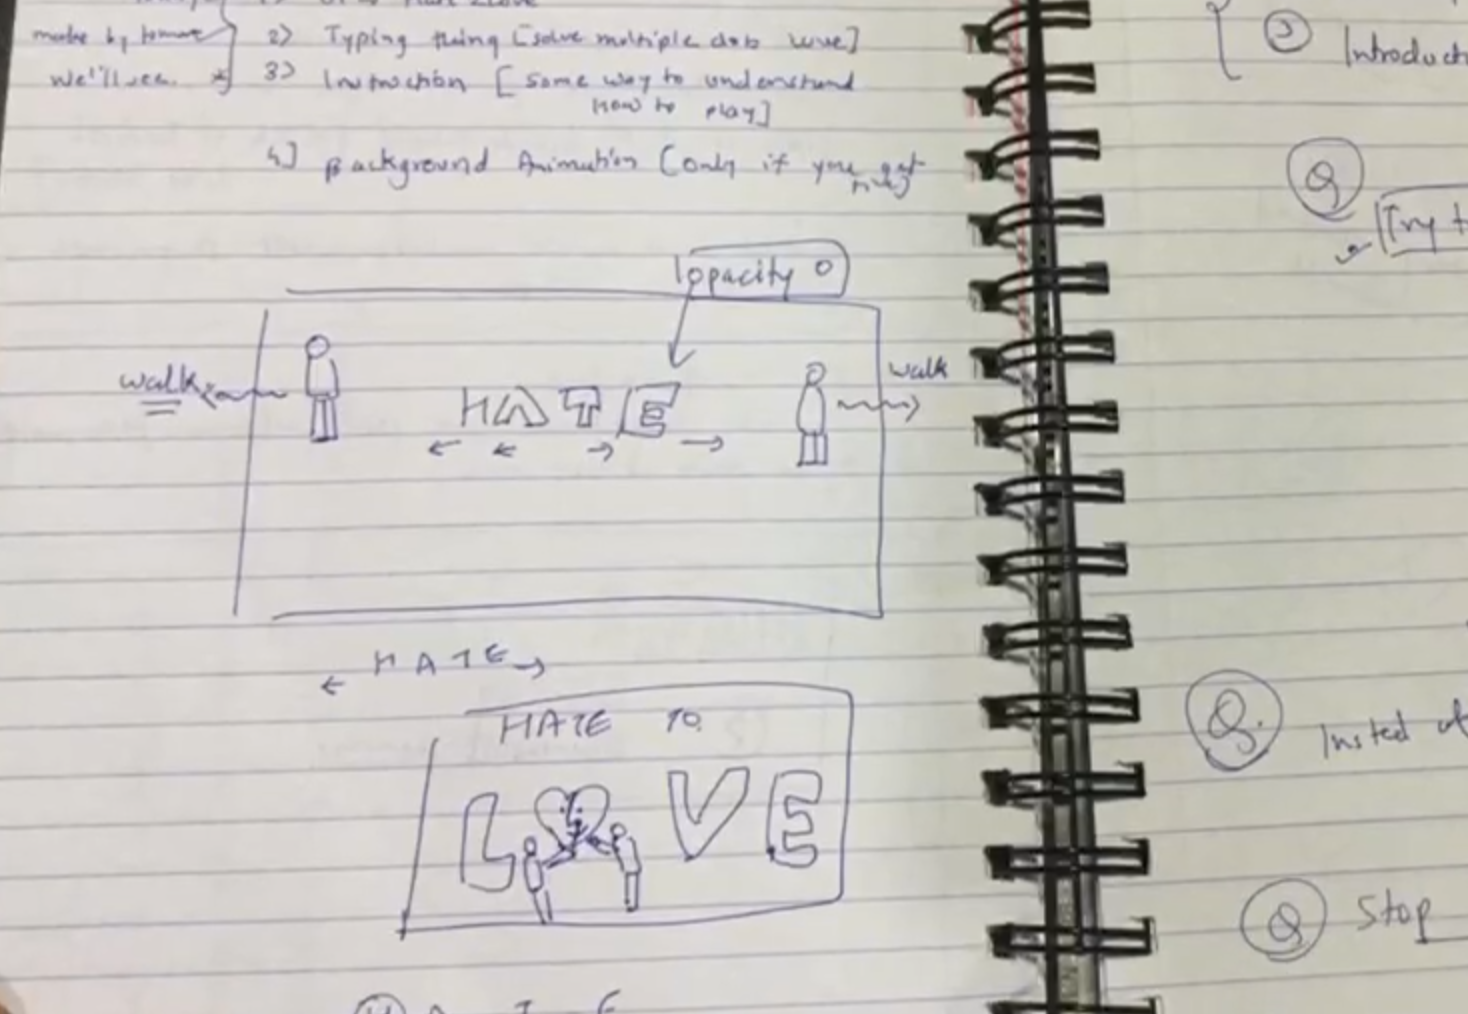 made by
we'll see. *
2) Typing thing [solve multiple
3) Instruction [some way to understand
how to play]
4] Background Animation (only if you get
opacity 0
walk
walk
HATE
HATE
HATE TO
LOVE
2 Introduct
Q
Try t
Q. Insted of
Q Stop